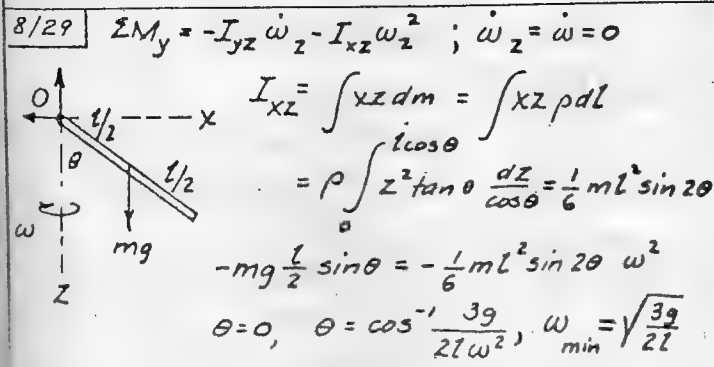 8/29 ΣM_y = -I_yz ω̇_z - I_xz ω_z² ; ω̇_z = ω̇ = 0
O l/2 x
θ l/2
ω mg
z
I_xz = ∫ xz dm = ∫ xz ρdl
= ρ ∫_0^{lcosθ} z² tan θ dz/cosθ = 1/6 ml² sin 2θ
-mg l/2 sinθ = -1/6 ml² sin 2θ ω²
θ = 0, θ = cos⁻¹ 3g/2lω², ω_min = √(3g/2l)